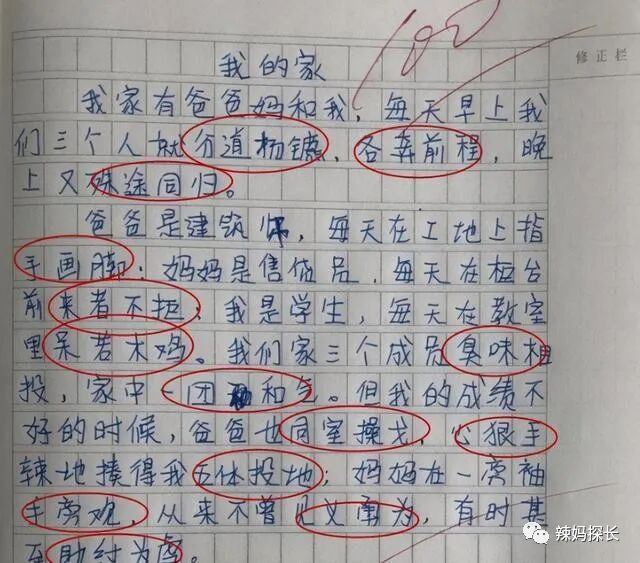 100
修正栏
我的家
我家有爸爸妈和我,每天早上我
们三个人就分道杨镳,各奔前程,晚
上又殊途同归。
爸爸是建筑师,每天在工地上指
手画脚;妈妈是售货员,每天在柜台
前来者不拒;我是学生,每天在教室
里呆若木鸡。我们家三个成员臭味相
投,家中一团和气。但我的成绩不
好的时候,爸爸也同室操戈,心狠手
辣地揍得我五体投地;妈妈在一旁袖
手旁观,从来不曾见义勇为,有时甚
至助纣为虐。
辣妈探长